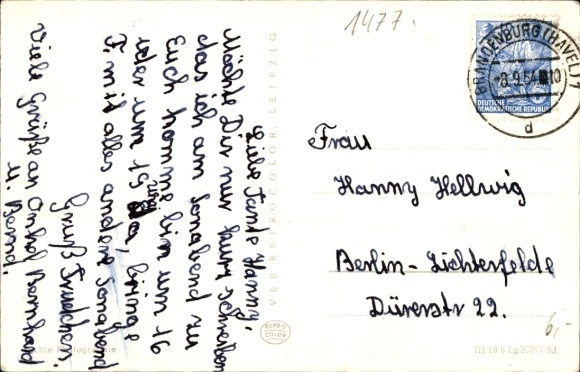 1477.
BRANDENBURG (HAVEL) 1
-8.9.54 10
d
DEUTSCHE
DEMOKRATISCHE REPUBLIK
Liebe Tante Hanny,
Möchte Dir nur kurz schreiben
das ich am Sonabend zu
Euch komme bin um 16
oder um 15 da, bringe
F. mit alles andere Sonabend
Gruß Friedchen.
Viele Grüße an Onkel Bernhard
u. Bernd.
VEB REPROCOLOR LEIPZIG
Frau
Hanny Hellwig
Berlin-Lichterfelde
Dürerstr 22.
6,-
REPRO
COLOR
Echte Photographie
III 18 6 Lp 53